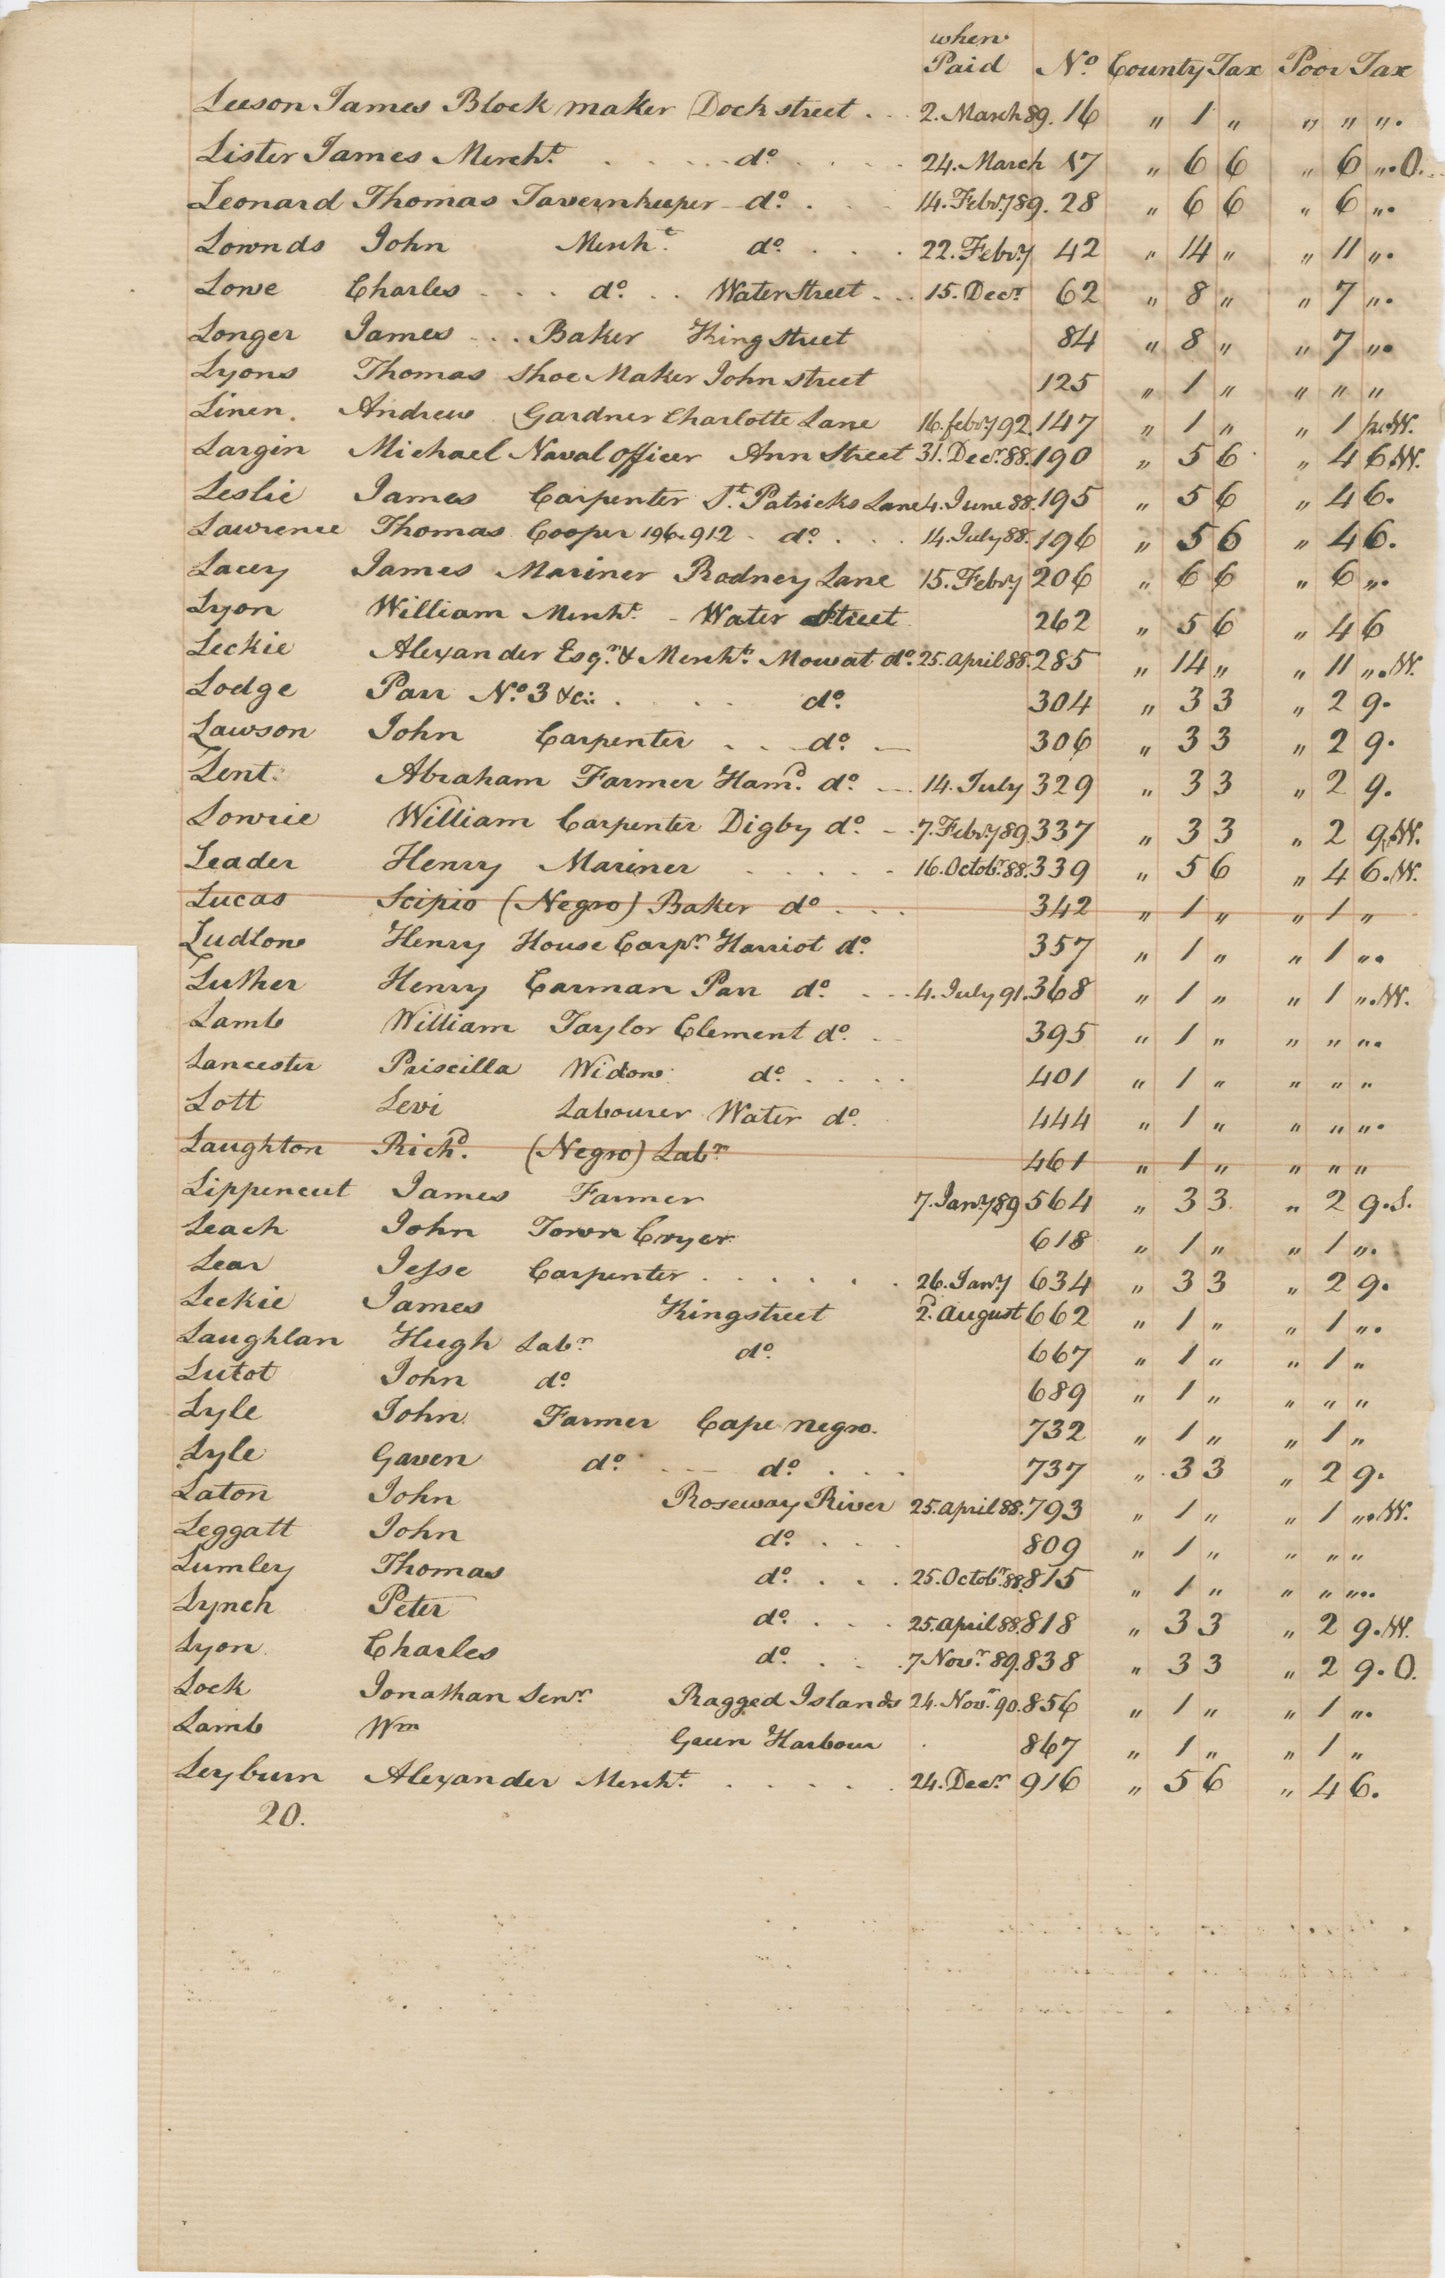 when
Paid No. County Tax Poor Tax
Leeson James Block maker Dock street . . 2. March 89. 16 " 1 " " " ".
Lister James Mercht. . . . . do. . . . 24. March 17 " 6 6 " 6 ". O.
Leonard Thomas Tavernkeeper do. . . 14. Febry 89. 28 " 6 6 " 6 ".
Lownds John Mercht. do. . . . 22. Febry 42 " 14 " " 11 ".
Lowe Charles . . . do. . . Water Street . . 15. Decr 62 " 8 " " 7 ".
Longer James . . . Baker King Street 84 " 8 " " 7 ".
Lyons Thomas Shoe Maker John street 125 " 1 " " " "
Linen. Andrew Gardner Charlotte Lane 16. febry 92. 147 " 1 " " 1 W.
Largin Michael Naval officer Ann Street 31. Decr. 88. 190 " 5 6 " 4 6 W.
Leslie James Carpenter St. Patricks Lane 4. June 88. 195 " 5 6 " 4 6.
Lawrence Thomas Cooper 196.912 . do. . . . 14. July 88. 196 " 5 6 " 4 6.
Lacey James Mariner Rodney Lane 15. Febry 206 " 6 6 " 6 ".
Lyon William Mercht. - Water Street 262 " 5 6 " 4 6
Leckie Alexander Esqr. & Mercht. Mowat do. 25. April 88. 285 " 14 " " 11 ". W.
Lodge Parr No. 3 &c: . . . . do. 304 " 3 3 " 2 9.
Lawson John Carpenter . . do. 306 " 3 3 " 2 9.
Lent Abraham Farmer Hamd. do. 14. July 329 " 3 3 " 2 9.
Lowrie William Carpenter Digby do. 7. Febry 89. 337 " 3 3 " 2 9. W.
Leader Henry Mariner . . . . . 16. Octobr. 88. 339 " 5 6 " 4 6. W.
Lucas Scipio (Negro) Baker do. . . 342 " 1 " " 1 "
Ludlow Henry House Carpr. Harriot do. 357 " 1 " " 1 ".
Luther Henry Carman Parr do. . . . 4. July 91. 368 " 1 " " 1 ". W.
Lamb William Taylor Clement do. 395 " 1 " " " ".
Lancester Priscilla Widow do. . . . . 401 " 1 " " " "
Lott Levi Labourer Water do. 444 " 1 " " " ".
Laughton Richd. (Negro) Labr 461 " 1 " " " "
Lippencut James Farmer 7. Jany 89 564 " 3 3 " 2 9. S.
Leach John Town Cryer 618 " 1 " " 1 ".
Lear Jesse Carpenter . . . . . . 26. Jany 634 " 3 3 " 2 9.
Leckie James King street 2d. August 662 " 1 " " 1 ".
Laughlan Hugh Labr do. 667 " 1 " " 1 "
Lutot John do. 689 " 1 " " " "
Lyle John Farmer Cape negro. 732 " 1 " " 1 "
Lyle Gaven do. do. . . . 737 " 3 3 " 2 9.
Laton John Roseway River 25. April 88. 793 " 1 " " 1 ". W.
Leggatt John do. . . . 809 " 1 " " " "
Lumley Thomas do. . . . 25. Octobr 88. 815 " 1 " " " ".
Lynch Peter do. . . . 25. April 88. 818 " 3 3 " 2 9. W.
Lyon Charles do. . . . 7 Novr. 89. 838 " 3 3 " 2 9. O.
Lock Jonathan Senr. Ragged Islands 24. Novr. 90. 856 " 1 " " 1 ".
Lamb Wm Green Harbour 867 " 1 " " 1 "
Leyburn Alexander Mercht. . . . . . 24. Decr 916 " 5 6 " 4 6.
20.